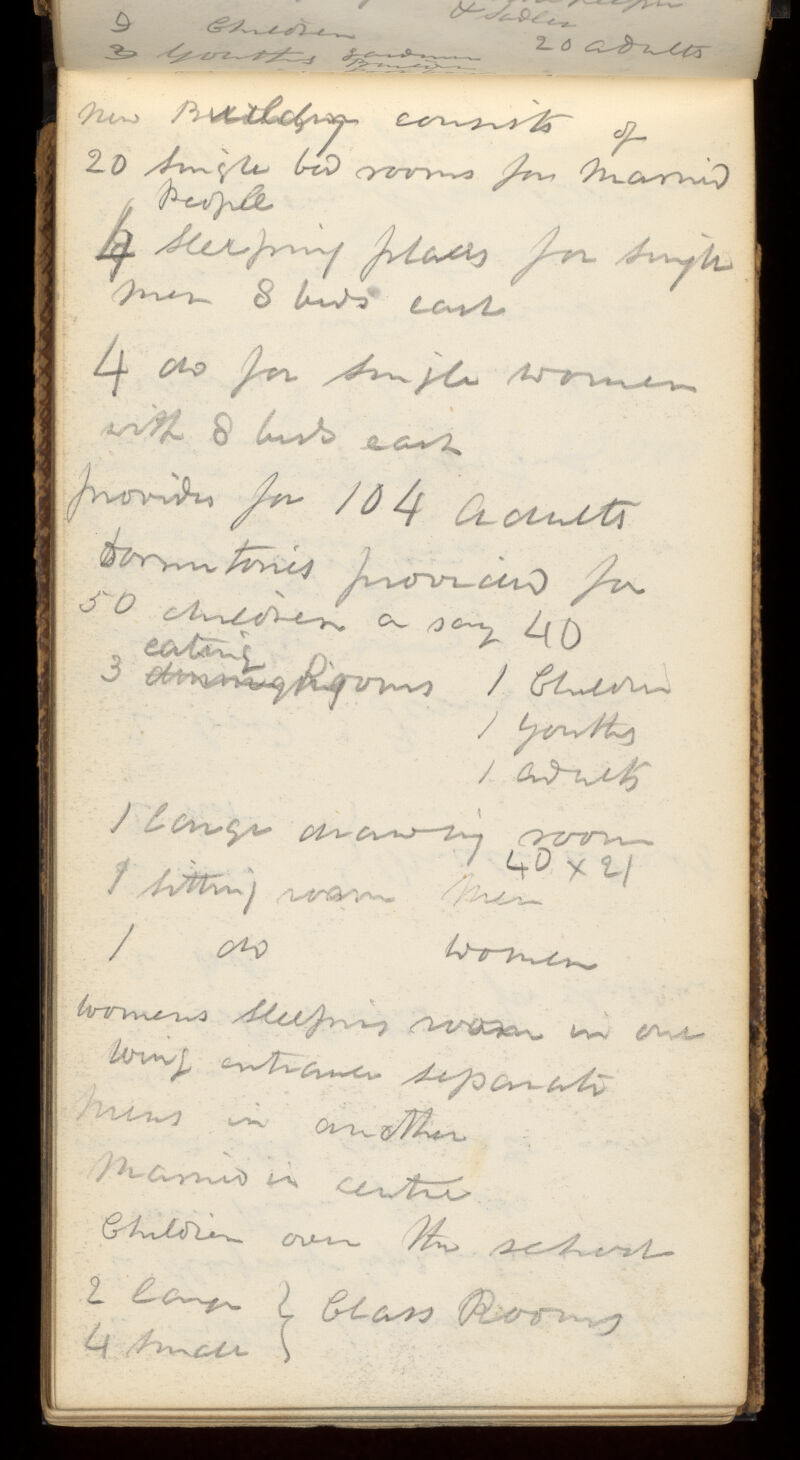 & Sadler
9 Children 20 adults
3 Youths
New Building consists of
20 single bed rooms for Married
People
4 sleeping places for single
men 8 beds each
4 do for single women
with 8 beds each
provides for 104 adults
Dormitories provided for
50 children or say 40
eating
3 dinning Rooms 1 Children
1 Youths
1 adults
1 large drawing room
40 x 21
1 sitting room Men
1 do women
womens sleeping room in one
wing entrance separate
Mens in another
Married in centre
Children over the school
2 large } Class Rooms
4 small